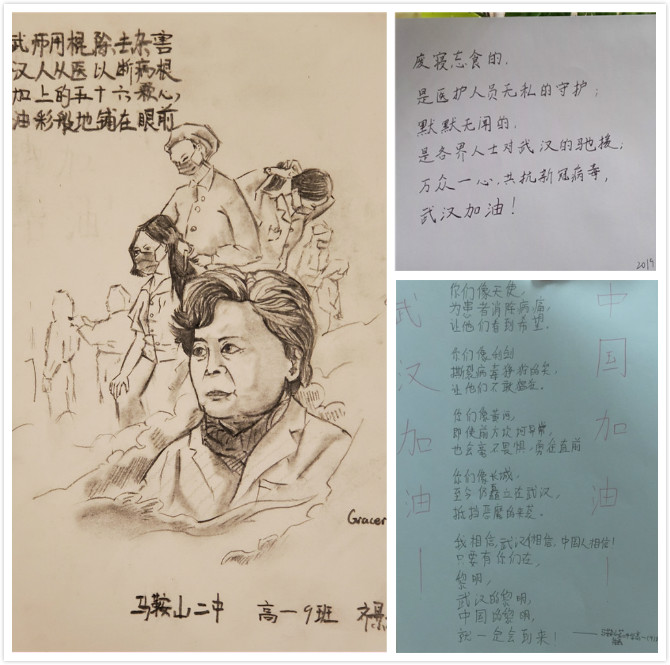 武师用棍除去杂害
汉人从医以断病根
加上的五十六颗心，
油彩般地铺在眼前
Gracer
马鞍山二中 高一9班
废寝忘食的，
是医护人员无私的守护；
默默无闻的，
是各界人士对武汉的驰援；
万众一心，共抗新冠病毒，
武汉加油！
武汉加油！
你们像天使，
为患者消除病痛，
让他们看到希望。
你们像利剑
撕裂病毒
让他们不敢
你们像黄河，
即使前方坎坷
也会毫不畏惧，勇往直前
你们像长城，
至今仍矗立在武汉，
抵挡恶魔的
我相信，武汉相信，中国人相信！
只要有你们在，
黎明，
武汉的黎明，
中国的黎明，
就一定会到来！
中国加油！